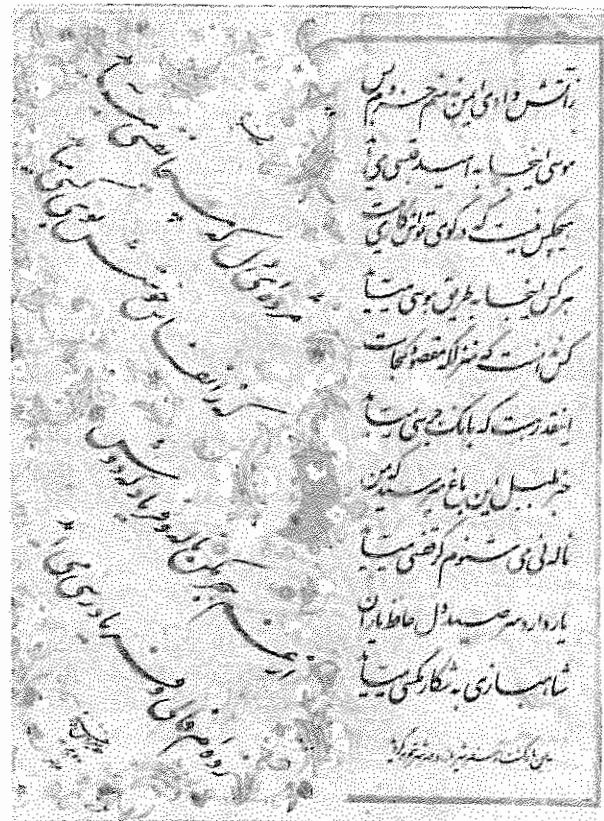 ز آتش وادی ایمن نه منم خرم و بس
موسی اینجا به امید قبسی می‌آید
هیچکس نیست که در کوی تواش کاری نیست
هر کس اینجا به طریق هوسی می‌آید
کس ندانست که منزلگه مقصود کجاست
اینقدر هست که بانگ جرسی می‌آید
خبر بلبل این باغ بپرسید که من
ناله‌ای می‌شنوم کز قفسی می‌آید
یار دارد سر صید دل حافظ یاران
شاهبازی به شکار مگسی می‌آید
مژده ای دل که مسیحا نفسی می‌آید
که ز انفاس خوشش بوی کسی می‌آید
از غم هجر مکن ناله و فریاد که دوش
زده‌ام فالی و فریادرسی می‌آید